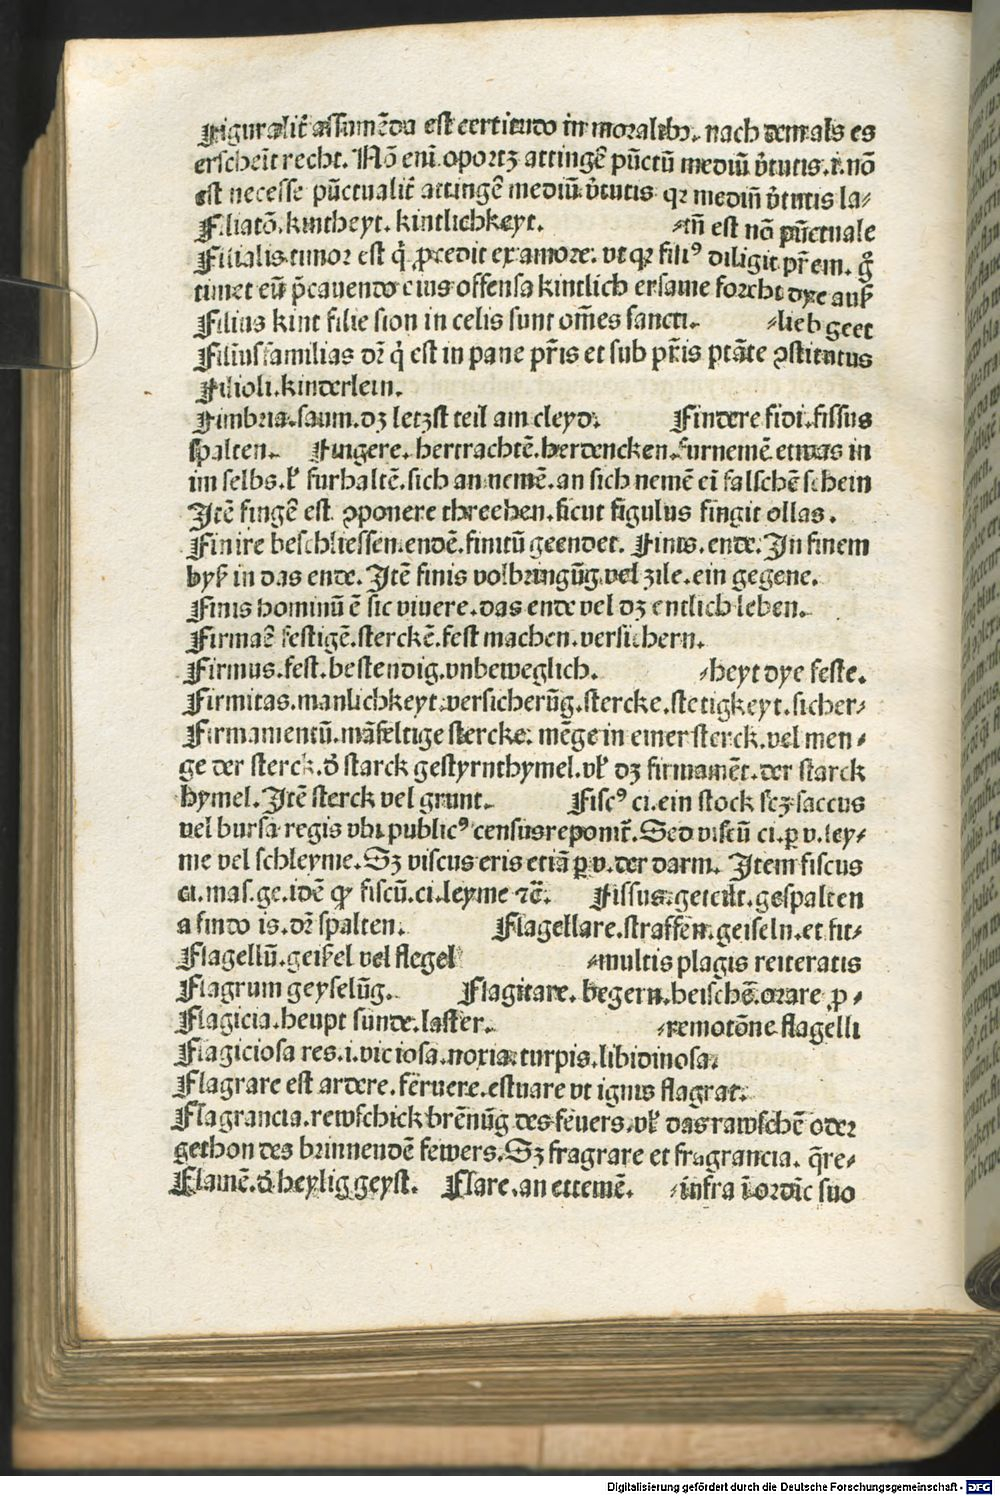 Figuralit̃ assumẽda est certitudo in moralibꝫ. nach dem als es
erscheĩt recht. Nõ eni. oportꝫ attingẽ pũctũ mediũ v̓tutis. i. nõ
est necesse pũctualit̃ attingẽ mediũ v̓tutis qꝛ mediũ v̓tutis la⸗
Filiatõ. kintheyt. kintlichkeyt. ⸗tũ est nõ pũctuale
Filialis timor est q̇ ꝓcedit ex amore. vt qꝛ filiꝰ diligit pr̃em. g̊
timet eũ p̃cauendo eius offensa kintlich ersame forcht dye auß
Filius kint filie sion in celis sunt om̃es sancti. ⸗lieb geet
Filiusfamilias dr̃ q̇ est in pane pr̃is et sub pr̃is ptãte ꝯstitutus
Filioli. kinderlein.
Fimbria. saum. dꝫ letzst teil am cleyd. Findere fidi. fissus
spalten. Fingere. hertrachtẽ. herdencken. furnemẽ. etwas in
im selbs. ł furhaltẽ. sich an nemẽ. an sich nemẽ eĩ falschẽ schein
Itẽ fingẽ est ꝯponere threehen. sicut figulus fingit ollas.
Finire beschliessen. endẽ. finitũ geendet. Finis. ende. In finem
byß in das ende. Itẽ finis volbringũg. vel zile. ein gegene.
Finis hominũ ẽ sic viuere. das ende vel dꝫ entlich leben.
Firmaẽ festigẽ. sterckẽ. fest machen. versichern.
Firmus. fest. bestendig. vnbeweglich. ⸗heyt dye feste.
Firmitas. manlichkeyt. versicherũg. stercke. stetigkeyt. sicher⸗
Firmamentũ. mãfeltige stercke. mẽge in einer sterck. vel men⸗
ge der sterck. d̓ starck gestyrnthymel. vł dꝫ firmamẽt. der starck
hymel. Itẽ sterck vel grunt. Fiscꝰ ci. ein stock scꝫ saccus
vel bursa regis vbi publicꝰ census reponit̃. Sed viscũ ci. ꝑ v. ley⸗
me vel schleyme. Sꝫ viscus eris etiã ꝑ v. der darm. Item fiscus
ci. mas. ge. idẽ qð fiscũ. ci. leyme ⁊c̃. Fissus. geteilt. gespalten
a findo is. dr̃ spalten. Flagellare. straffen. geiseln. et fit⸗
Flagellũ. geißel vel flegel ⸗multis plagis reiteratis
Flagrum geyselũg. Flagitare. begern. heischẽ. orare ꝓ⸗
Flagicia. heupt sunde. laster. ⸗remotõne flagelli
Flagiciosa res. i. viciosa. noxia. turpis. libidinosa.
Flagrare est ardere. feruere. estuare vt ignis flagrat.
Flagrancia. rewschick brẽnũg des feuers. vł das rawschẽ oder
gethon des brinnendẽ fewers. Sꝫ fragrare et fragrancia. q̃re⸗
Flamẽ. d̓ heylig geyst. Flare. an ettemẽ. ⸗infra ĩ ordĩe suo
Digitalisierung gefördert durch die Deutsche Forschungsgemeinschaft - DFG